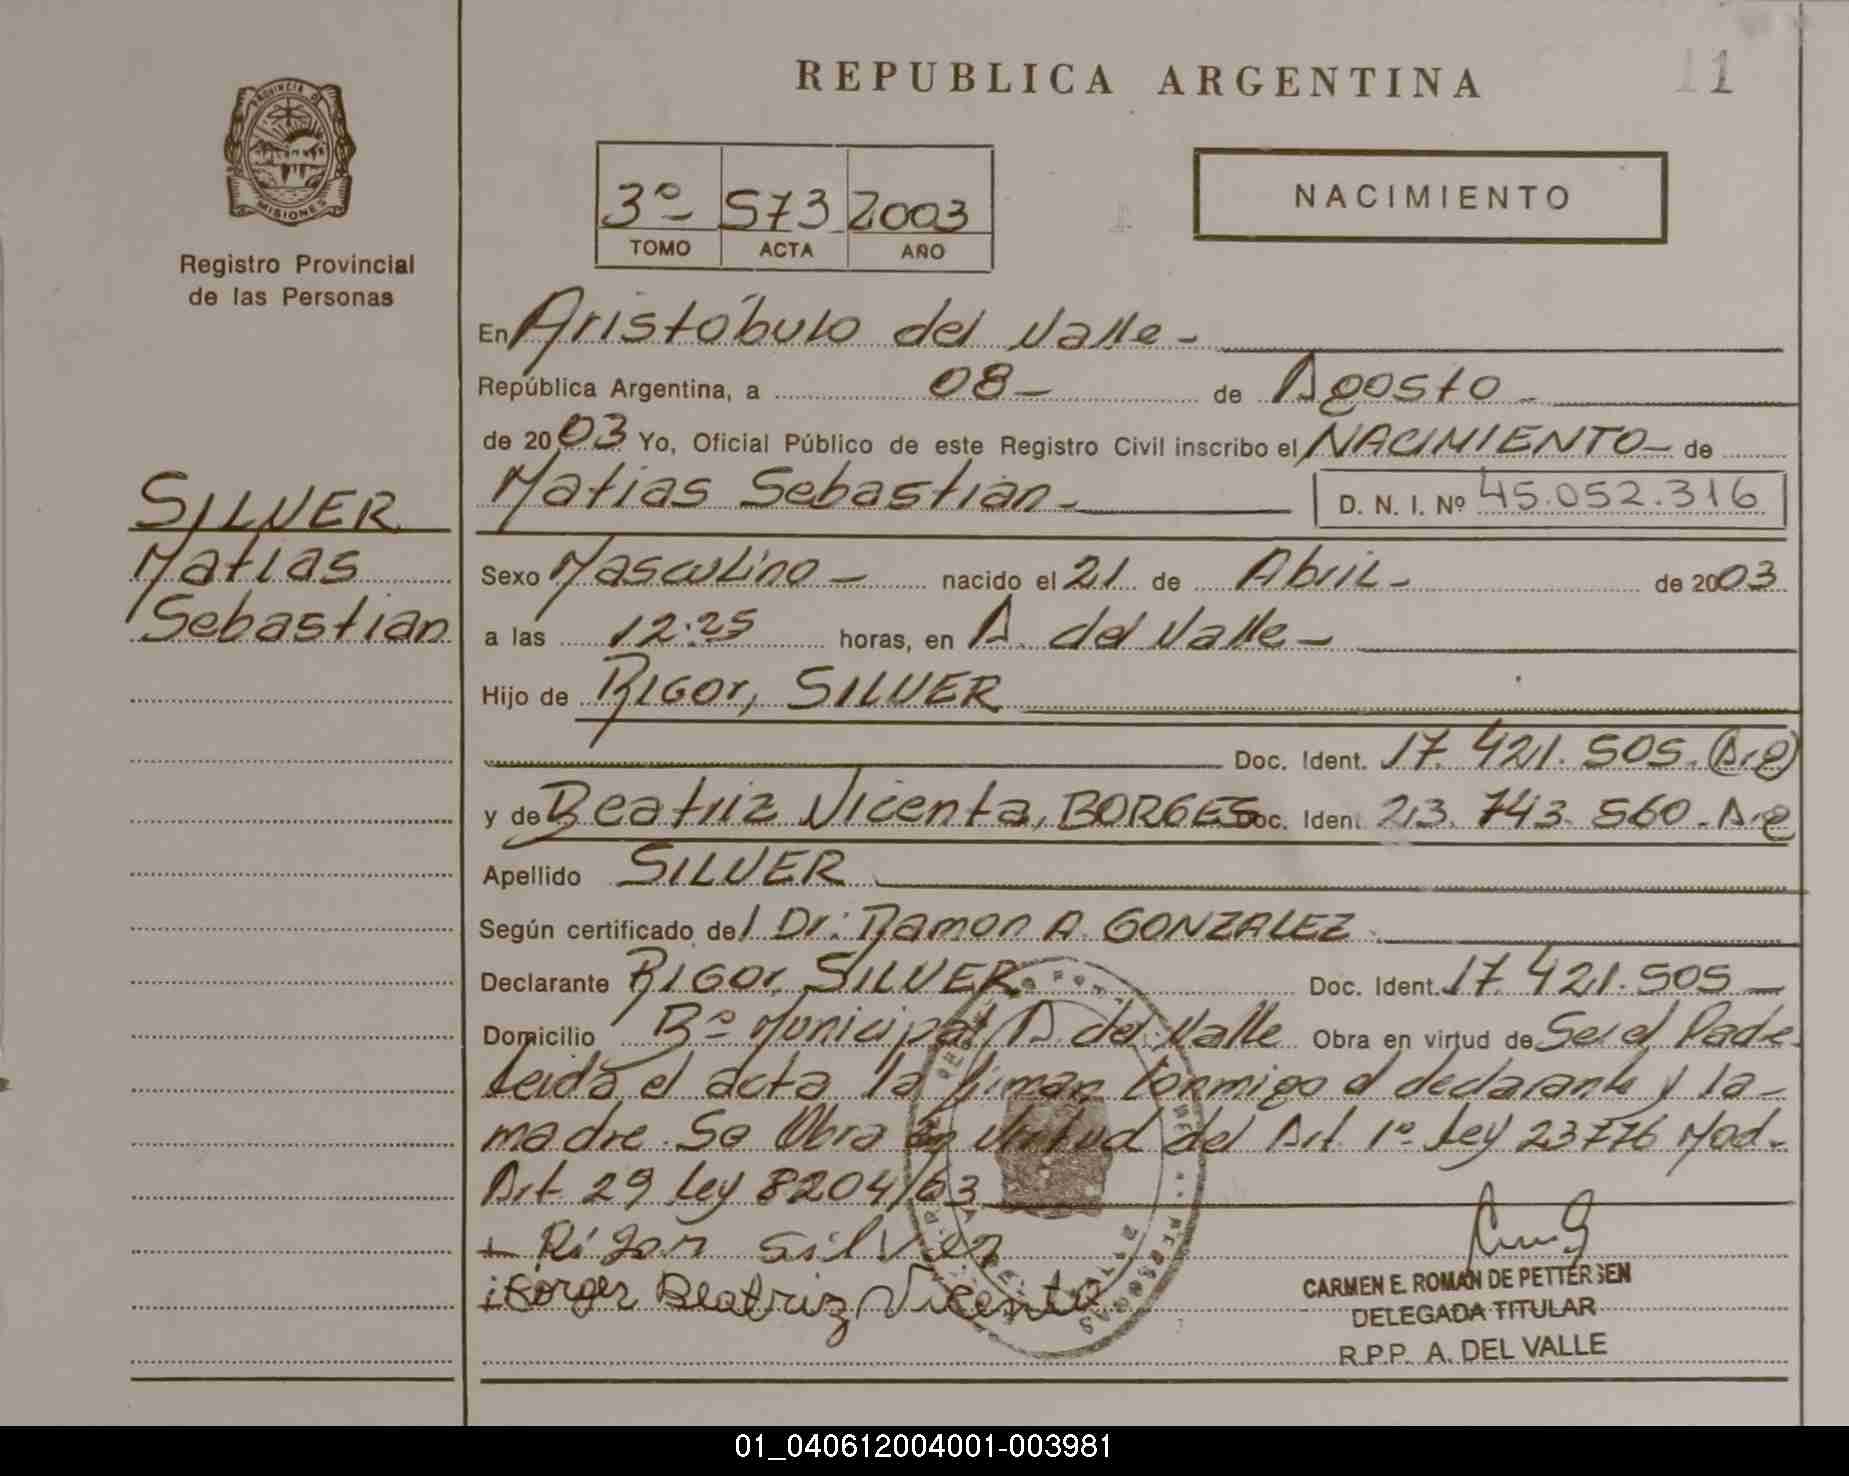 REPUBLICA ARGENTINA
11
PROVINCIA DE
MISIONES
Registro Provincial
de las Personas
3º 573 2003
TOMO ACTA AÑO
NACIMIENTO
En Aristóbulo del Valle -
República Argentina, a 08 - de Agosto -
de 2003 Yo, Oficial Público de este Registro Civil inscribo el NACIMIENTO - de
Matias Sebastian - D. N. I. Nº 45.052.316
SILVER
Matias
Sebastian
Sexo Masculino - nacido el 21 de Abril - de 2003
a las 12:25 horas, en A. del Valle -
Hijo de RIGOr, SILVER
Doc. Ident. 17.421.505. (Arg)
y de Beatriz Vicenta, BORGES Doc. Iden. 23.743.560 - Arg
Apellido SILVER
Según certificado del Dr: Ramon A. GONZALEZ
Declarante RIGOr, SILVER Doc. Ident. 17.421.505 -
Domicilio Bº Municipal A. del Valle Obra en virtud de Ser el Padre
Leida el acta la firman conmigo el declarante y la -
madre. Se Obra en virtud del Art. 1º Ley 23776 Mod.
Art 29 Ley 8204/63
Rigor Silver
Borges Beatriz Vicenta
CARMEN E. ROMAN DE PETTERSEN
DELEGADA TITULAR
R.P.P. A. DEL VALLE
01_040612004001-003981